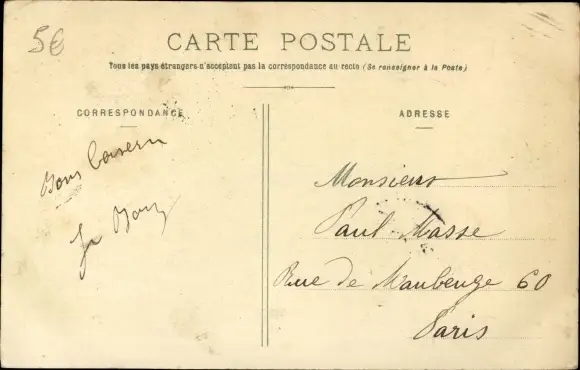 5€
CARTE POSTALE
Tous les pays étrangers n'acceptent pas la correspondance au recto (Se renseigner à la Poste)
CORRESPONDANCE
Bons baisers
ADRESSE
Monsieur
Paul Masse
Rue de Maubeuge 60
Paris